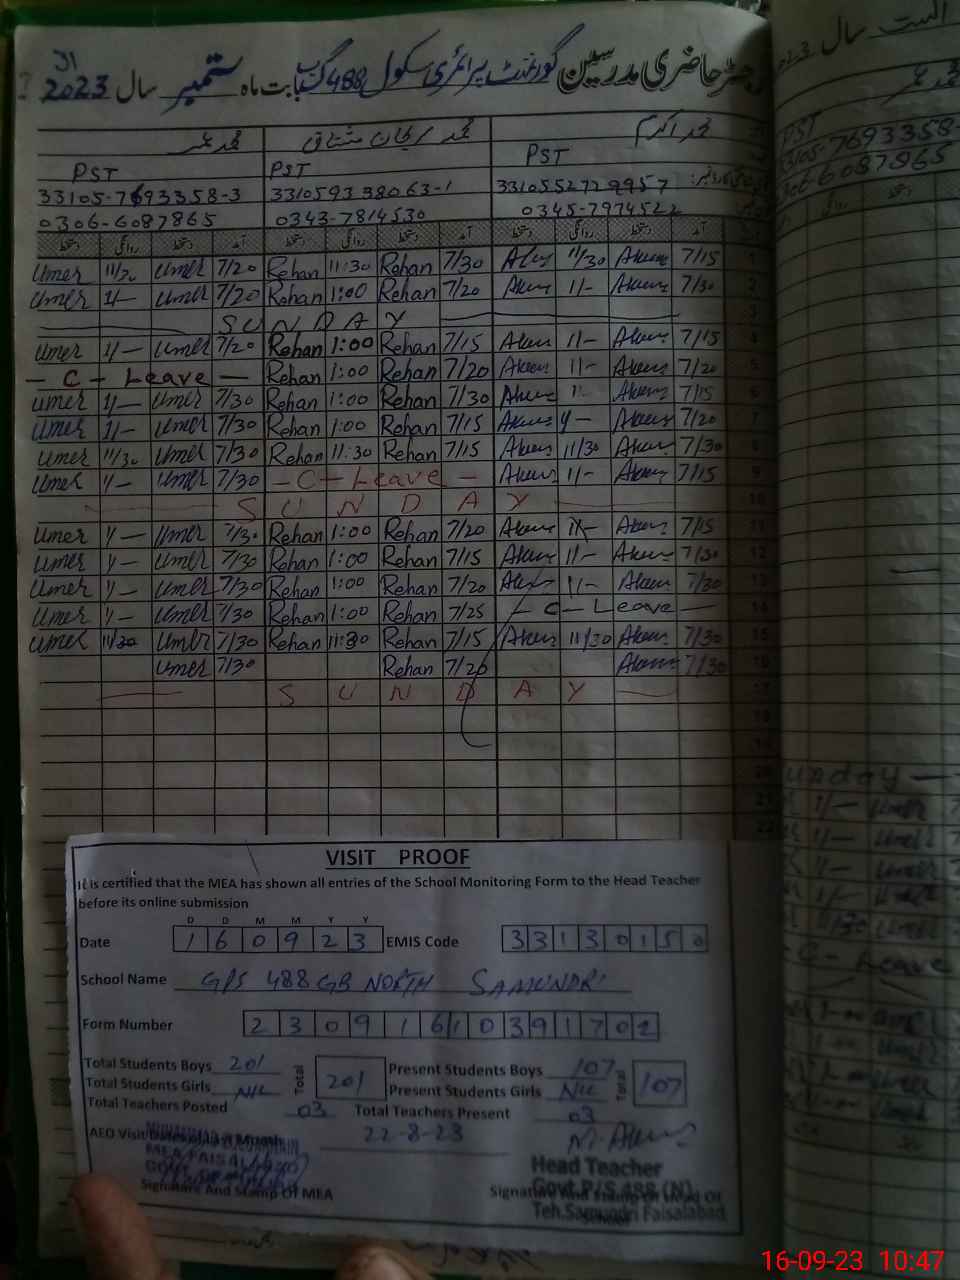 رجسٹر حاضری مدرسین گورنمنٹ پرائمری سکول 488 گ ب بابت ماہ ستمبر سال 2023
محمد اکرم محمد ریحان مشتاق محمد عمر
PST PST PST
33105-7693358-3 331059338063-1 3310552729957
0306-6087865 0343-7814530 0345-7974522
دستخط روانگی دستخط آمد دستخط روانگی دستخط آمد دستخط روانگی دستخط آمد
Umer 11/30 Umer 7/20 Rehan 11:30 Rehan 7/30 Akum 11/30 Akum 7/15 1
Umer 1/- Umer 7/20 Rehan 1:00 Rehan 7/20 Akum 1/- Akum 7/30 2
SUNDAY 3
Umer 1/- Umer 7/20 Rehan 1:00 Rehan 7/15 Akum 1/- Akum 7/15 4
- C - Leave - Rehan 1:00 Rehan 7/20 Akum 1/- Akum 7/20 5
Umer 1/- Umer 7/30 Rehan 1:00 Rehan 7/30 Akum 1- Akum 7/15 6
Umer 1/- Umer 7/30 Rehan 1:00 Rehan 7/15 Akum 1/- Akum 7/20 7
Umer 11/30 Umer 7/30 Rehan 11:30 Rehan 7/15 Akum 11/30 Akum 7/30 8
Umer 1/- Umer 7/30 - C - Leave - Akum 1/- Akum 7/15 9
SUNDAY 10
Umer 1/- Umer 7/30 Rehan 1:00 Rehan 7/20 Akum 1/- Akum 7/15 11
Umer 1/- Umer 7/30 Rehan 1:00 Rehan 7/15 Akum 1/- Akum 7/30 12
Umer 1/- Umer 7/30 Rehan 1:00 Rehan 7/20 Akum 1/- Akum 7/30 13
Umer 1/- Umer 7/30 Rehan 1:00 Rehan 7/25 - C - Leave - 14
Umer 11/30 Umer 7/30 Rehan 11:30 Rehan 7/15 Akum 11/30 Akum 7/30 15
Umer 7/30 Rehan 7/20 Akum 7/30 16
SUNDAY 17
18
19
20
21
22
VISIT PROOF
It is certified that the MEA has shown all entries of the School Monitoring Form to the Head Teacher
before its online submission
D D M M Y Y
Date 160923 EMIS Code 33130150
School Name GPS 488 GB NORTH SAMUNDRI
Form Number 23091610391702
Total Students Boys 201 Total 201 Present Students Boys 107 Total 107
Total Students Girls Nil Present Students Girls Nil
Total Teachers Posted 03 Total Teachers Present 03
AEO Visit Date 22-8-23 M. Akum
MEA FAISALABAD
Head Teacher
Govt P/S 488 (N)
Signature And Stamp Of MEA Signature And Stamp Of Head Of School
Teh. Samundri Faisalabad
اگست سال 2023
محمد عمر
PST
33105-7693358-
0306-6087865
Sunday -
C - Leave
16-09-23 10:47